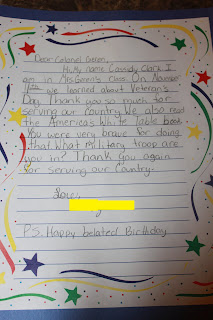 Dear Colonel Green,
Hi, My name Cassidy Clark I
am in Mrs. Green's class. On
11th we learned about Veteran's
Day. Thank you so much for
serving our country. We also read
the America's White Table book.
You were very brave for doing
that. What military troop are
you in? Thank you again
for serving our Country.
Love,
P.S. Happy belated Birthday